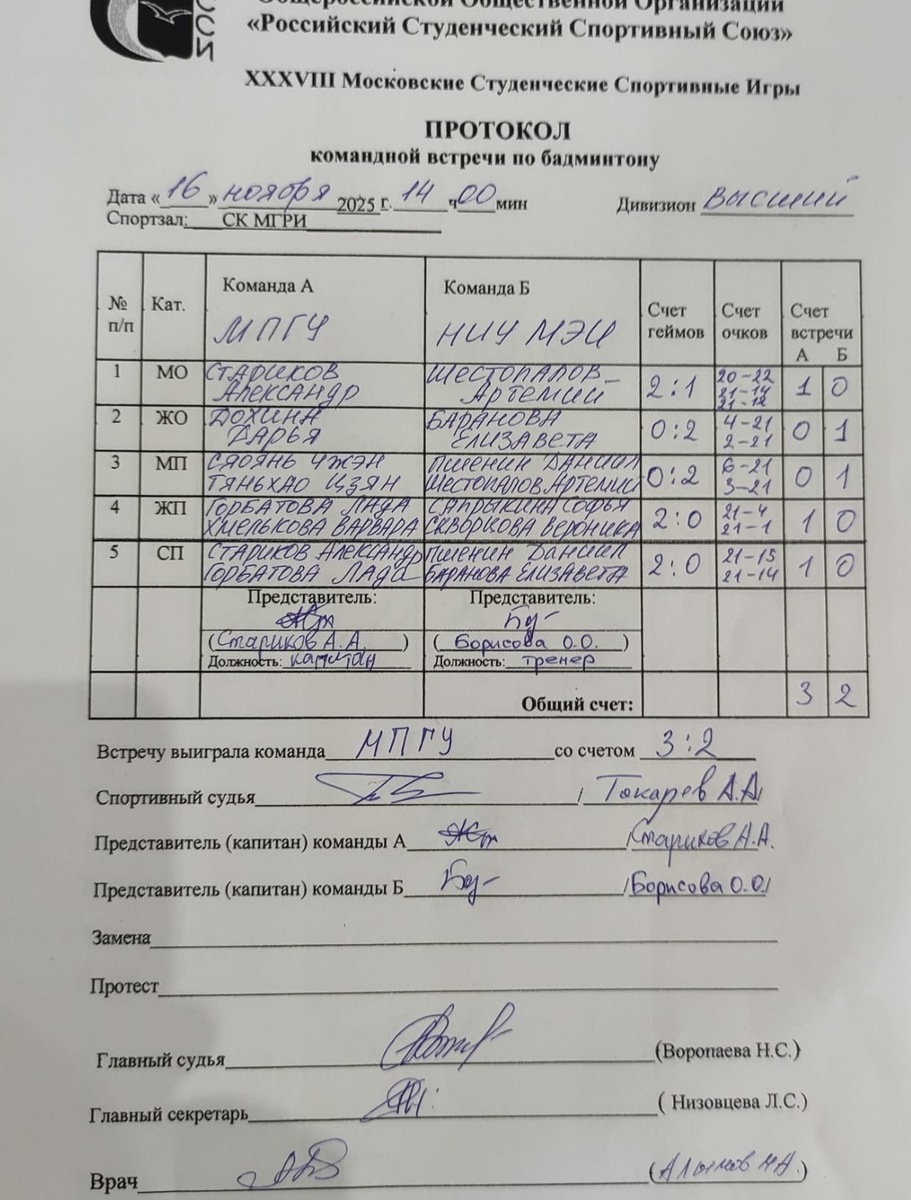 ССИ
Общероссийской Общественной Организации
«Российский Студенческий Спортивный Союз»
XXXVIII Московские Студенческие Спортивные Игры
ПРОТОКОЛ
командной встречи по бадминтону
Дата «16» ноября 2025 г. 14 ч 00 мин Дивизион Высший
Спортзал: СК МГРИ
№ п/п Кат. Команда А Команда Б Счет геймов Счет очков Счет встречи А Б
МПГУ НИУ МЭИ
1 МО Стариков Александр Шестопалов Артемий 2:1 20-22 21-14 21-12 1 0
2 ЖО Дохина Дарья Баранова Елизавета 0:2 4-21 2-21 0 1
3 МП Сяоянь Чжэн Тяньхао Цзян Пшенин Даниил Шестопалов Артемий 0:2 6-21 3-21 0 1
4 ЖП Горбатова Лада Хмелькова Варвара Сапрыкина Софья Скворкова Вероника 2:0 21-4 21-1 1 0
5 СП Стариков Александр Горбатова Лада Пшенин Даниил Баранова Елизавета 2:0 21-15 21-14 1 0
Представитель: Представитель:
(Стариков А.А.) (Борисова О.О.)
Должность: капитан Должность: тренер
Общий счет: 3 2
Встречу выиграла команда МПГУ со счетом 3:2
Спортивный судья / Токарев А.А/
Представитель (капитан) команды А /Стариков А.А.
Представитель (капитан) команды Б /Борисова О.О./
Замена
Протест
Главный судья (Воропаева Н.С.)
Главный секретарь ( Низовцева Л.С.)
Врач